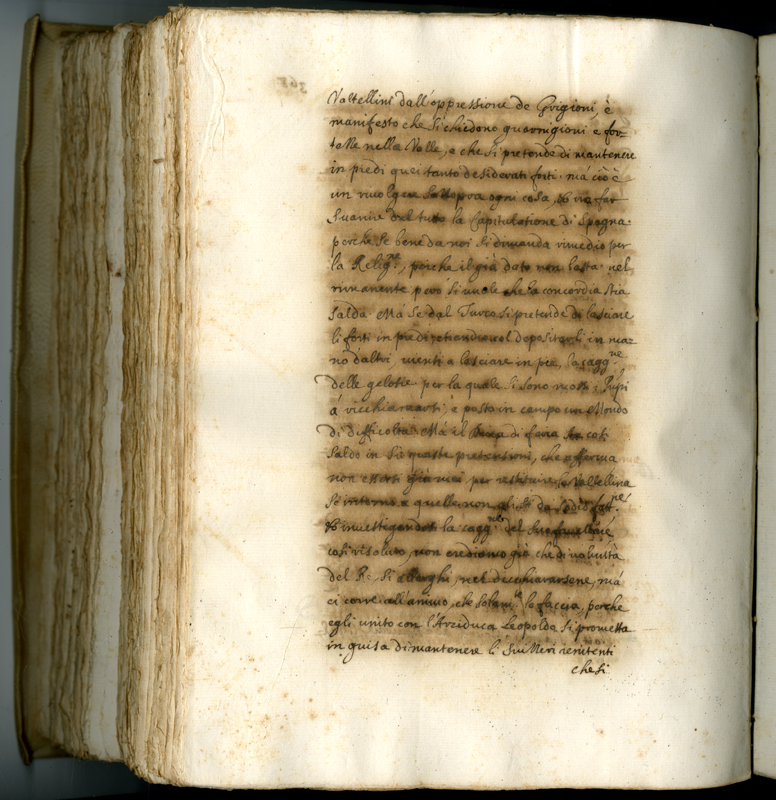 Valtellini dall'oppressione de Grigioni, è
manifesto che si chiedono guarnigioni è for-
tezze nella Valle, e che si pretende di mantenere
in piedi quei tanto desiderati forti. ma ciò è
un rivolgere sottopra ogni cosa, & via far
suanire del tutto la Capitulatione di Spagna.
perche se bene da noi si dimanda rimedio per
la Relig.ne, perche il già dato non basta. nel
rimanente però si vuole che la concordia stia
salda. Ma se dal si pretende di lasciare
li forti in piedi ò depositarli in ma-
no d'altri, vienti a lasciare in pie, la cagg.ne
delle gelosie per la quale si sono mossi i
à richiamarti, è posto in campo un Mondo
di difficoltà. Ma il di feria
saldo in se queste pretensioni, che afferma
non esserti già mai per restituire la Valtellina
se intorno a quelle non
& investigandosi la cagg.ne del suo
cosi risoluto, non crediamo già che di volontà
del Re, si allarghi, nel dicchiararsene, ma
ci corre all'animo, che solam.te lo faccia, perche
egli unito con l'Arciduca Leopoldo si prometta
in guisa di mantenere li Suizzeri renitenti
che si